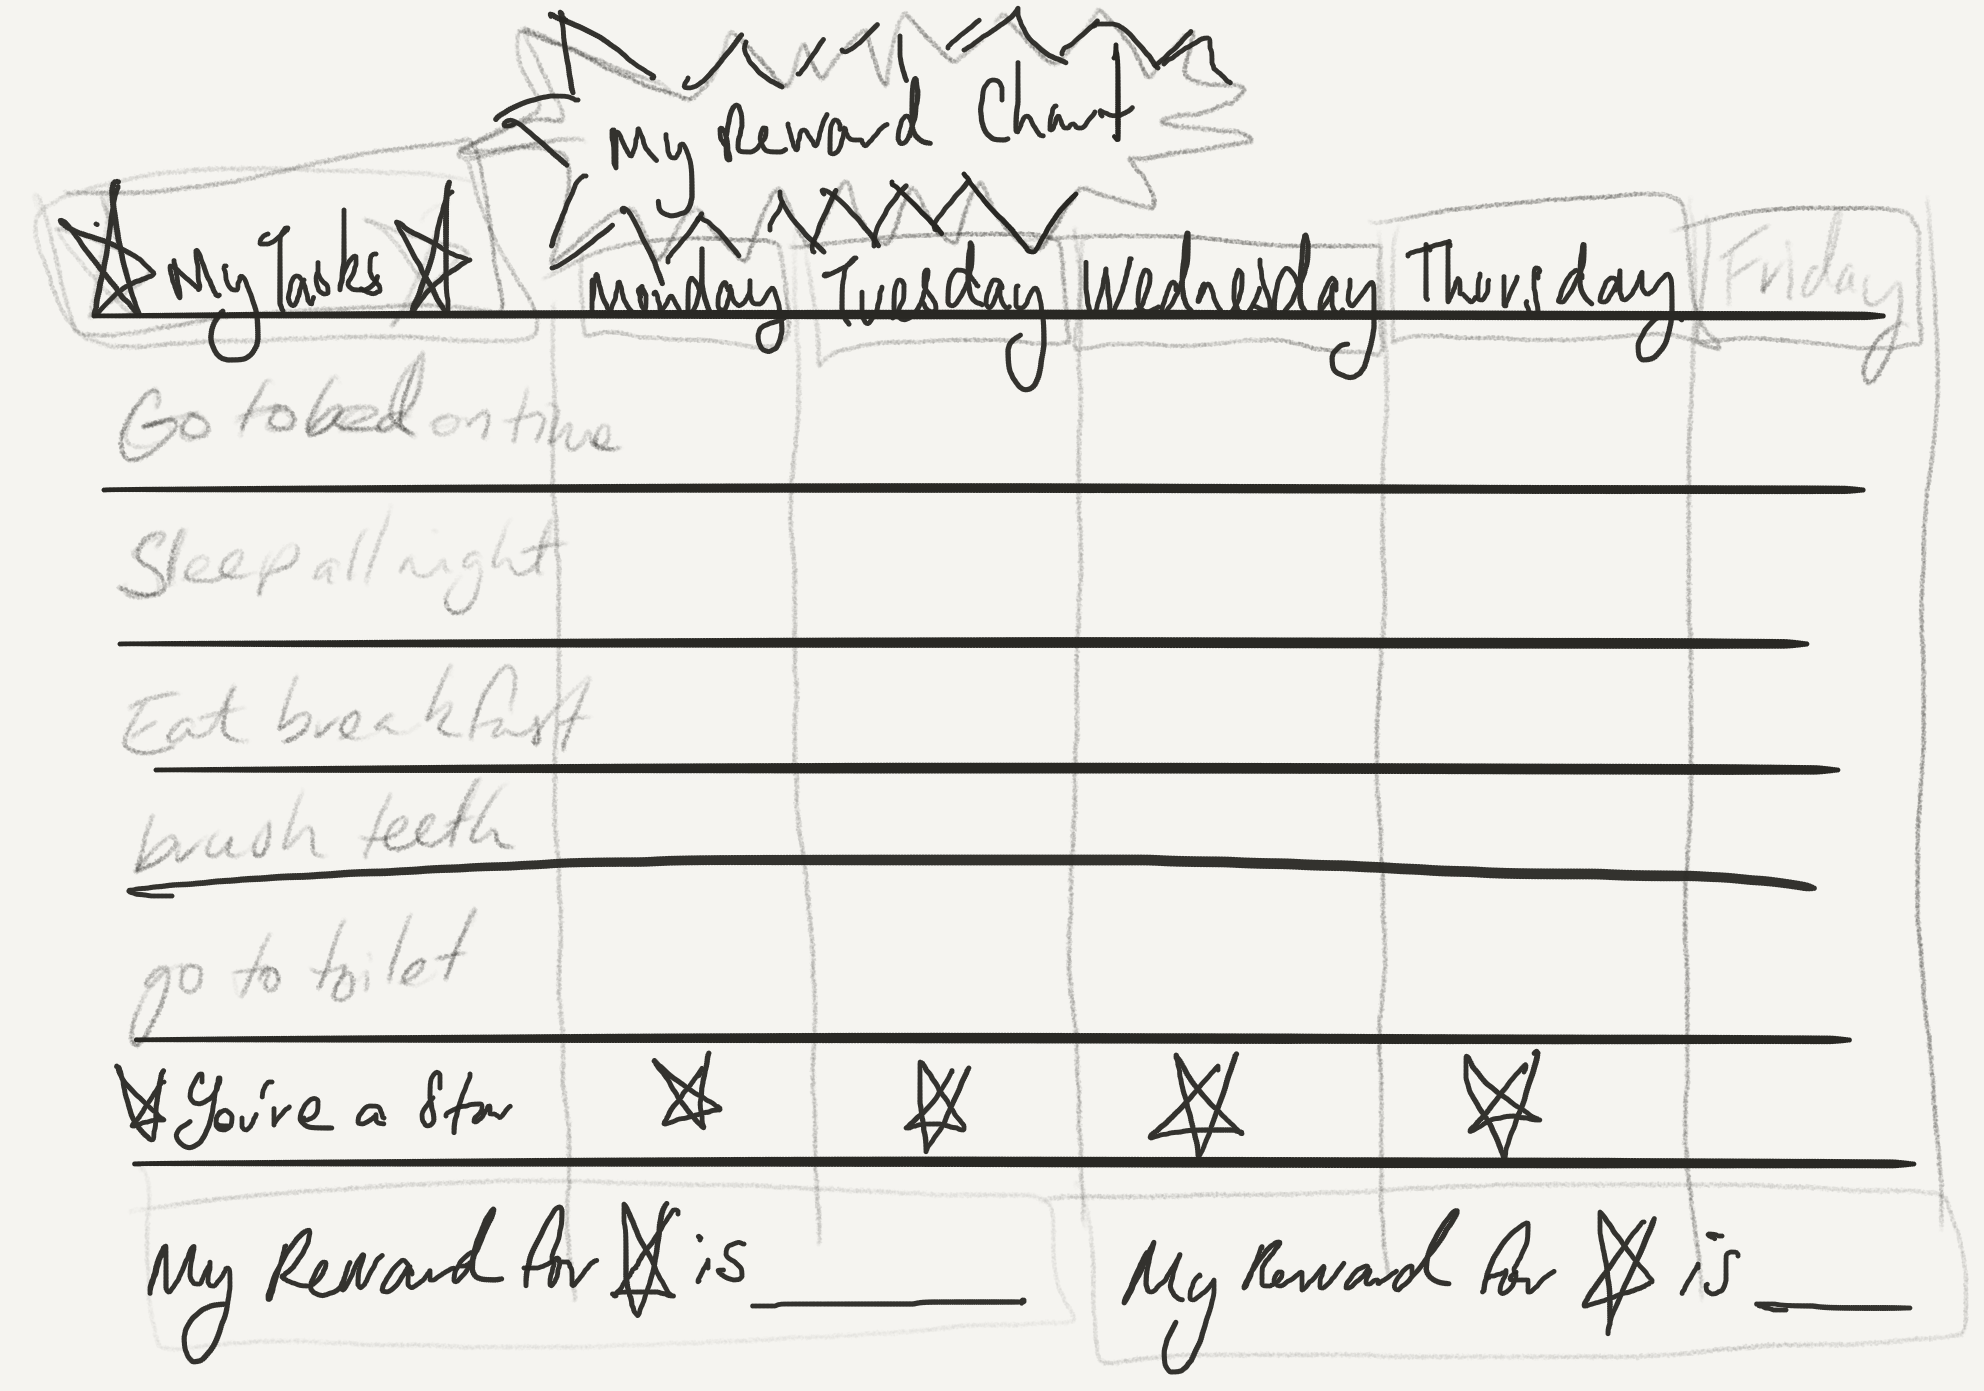 My Reward Chart
My Tasks Monday Tuesday Wednesday Thursday Friday
Go to bed on time
Sleep all night
Eat breakfast
brush teeth
go to toilet
You're a Star
My Reward for is ______ My Reward for is ______